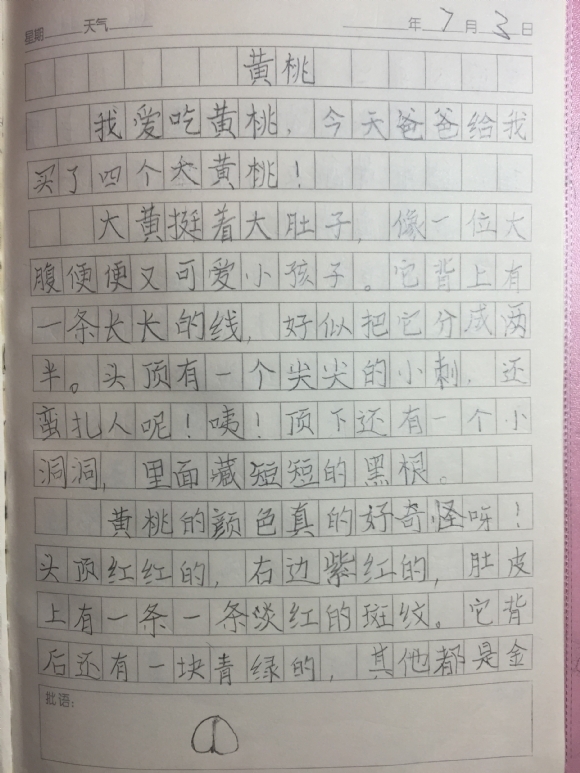 星期 天气 年 7 月 3 日
黄桃
我爱吃黄桃，今天爸爸给我
买了四个大黄桃！
大黄挺着大肚子，像一位大
腹便便又可爱小孩子。它背上有
一条长长的线，好似把它分成两
半。头顶有一个尖尖的小刺，还
蛮扎人呢！咦！顶下还有一个小
洞洞，里面藏短短的黑根。
黄桃的颜色真的好奇怪呀！
头顶红红的，右边紫红的，肚皮
上有一条一条淡红的斑纹。它背
后还有一块青绿的，其他都是金
批语：